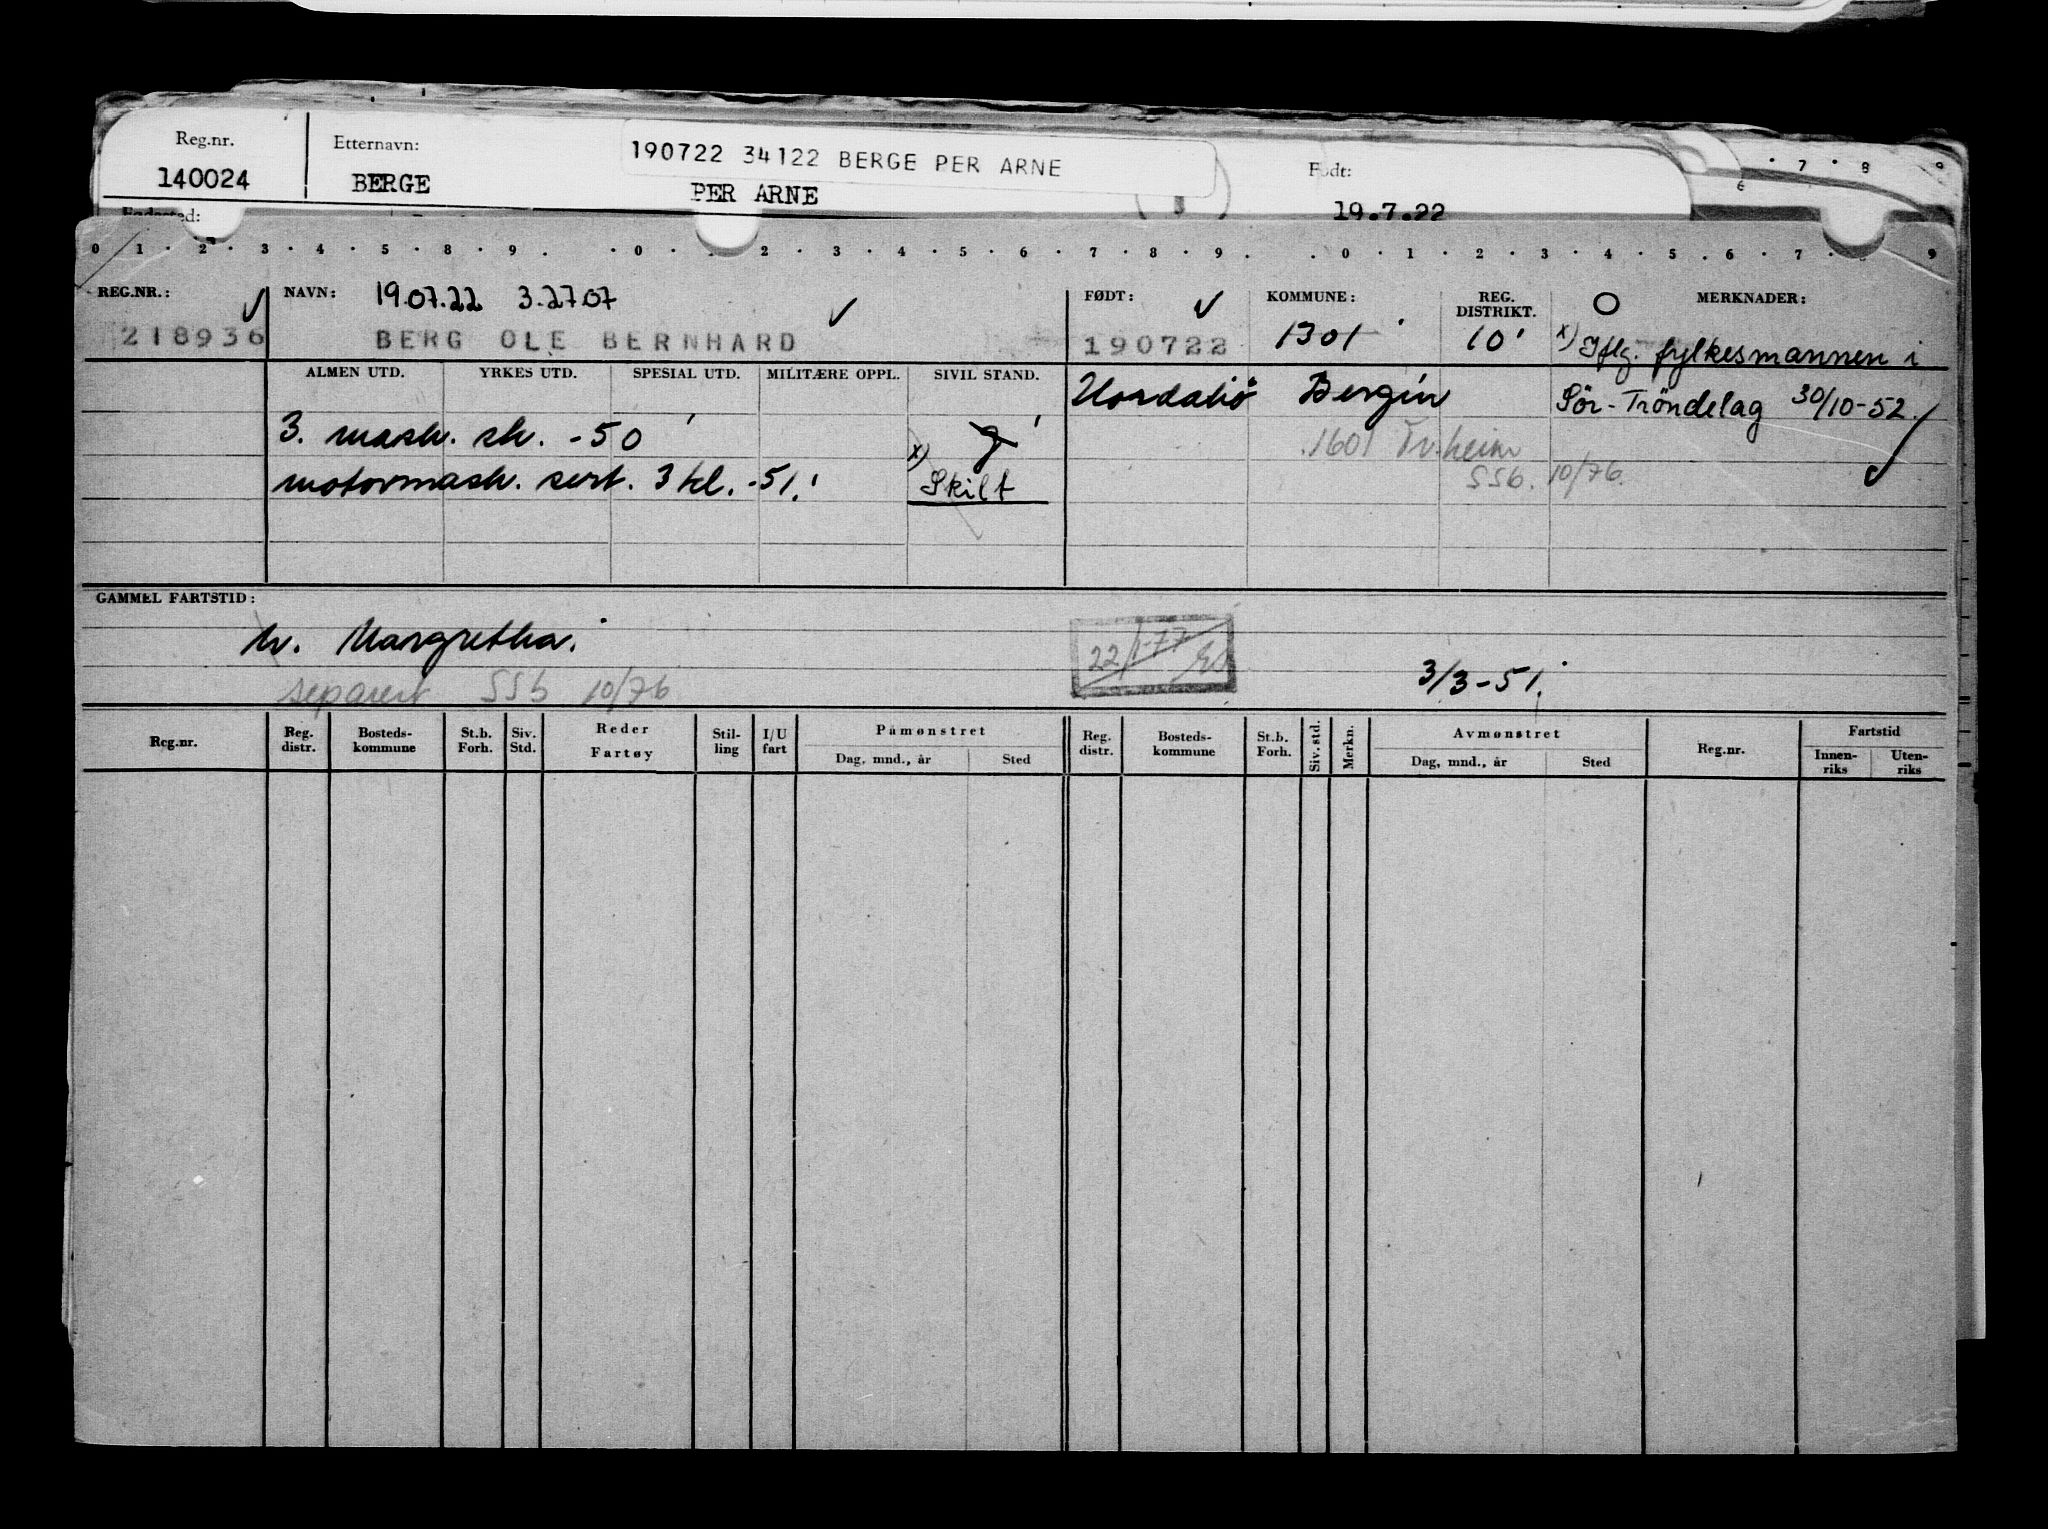 Reg.nr. Etternavn: 190722 34122 BERGE PER ARNE Født:
140024 BERGE PER ARNE 19.7.22
7 8 9
6
0 1 2 3 4 5 8 9 0 2 3 4 5 6 7 8 9 0 1 2 3 4 5 6 7 9
REG.NR.: NAVN: 19.07.22 3.27.07 FØDT: KOMMUNE: REG. DISTRIKT. MERKNADER:
218936 BERG OLE BERNHARD 190722 1301 10 x) Iflg. fylkesmannen i
ALMEN UTD. YRKES UTD. SPESIAL UTD. MILITÆRE OPPL. SIVIL STAND. Bergen Sör-Tröndelag 30/10-52.
3. mask. sk. -50 g 1601 Tr.heim
motormask. sert. 3 kl. -51. x) Skilt SSb. 10/76.
GAMMEL FARTSTID:
h. Margretha. 22/1-77
3/3-51.
separert SSb 10/76
Reg.nr. Reg. distr. Bosteds- kommune St.b. Forh. Siv. Std. Reder Fartøy Stil- ling I/U fart Påmønstret Dag, mnd., år Sted Reg. distr. Bosteds- kommune St.b. Forh. Siv. std. Merkn. Avmønstret Dag, mnd., år Sted Reg.nr. Fartstid Innen- riks Uten- riks